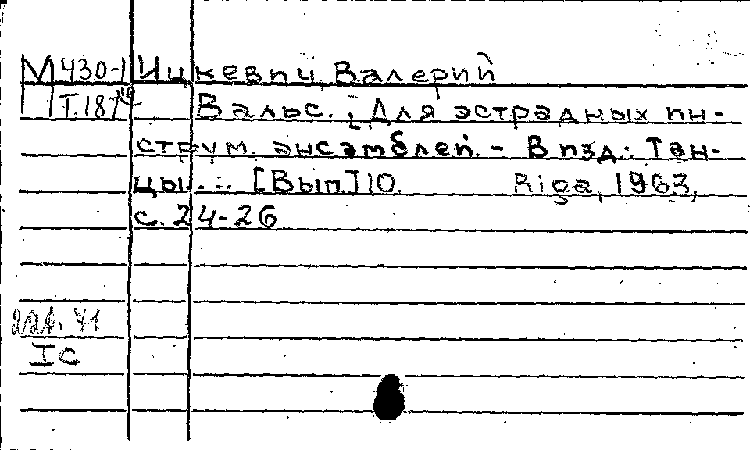 М430-1 Ицкевич, Валерий
Т.187 Вальс. [Для эстрадных ин-
струм. ансамблей. - В изд.: Тан-
цы. .. [Вып] 10. Riga, 1963,
с. 24-26
IC